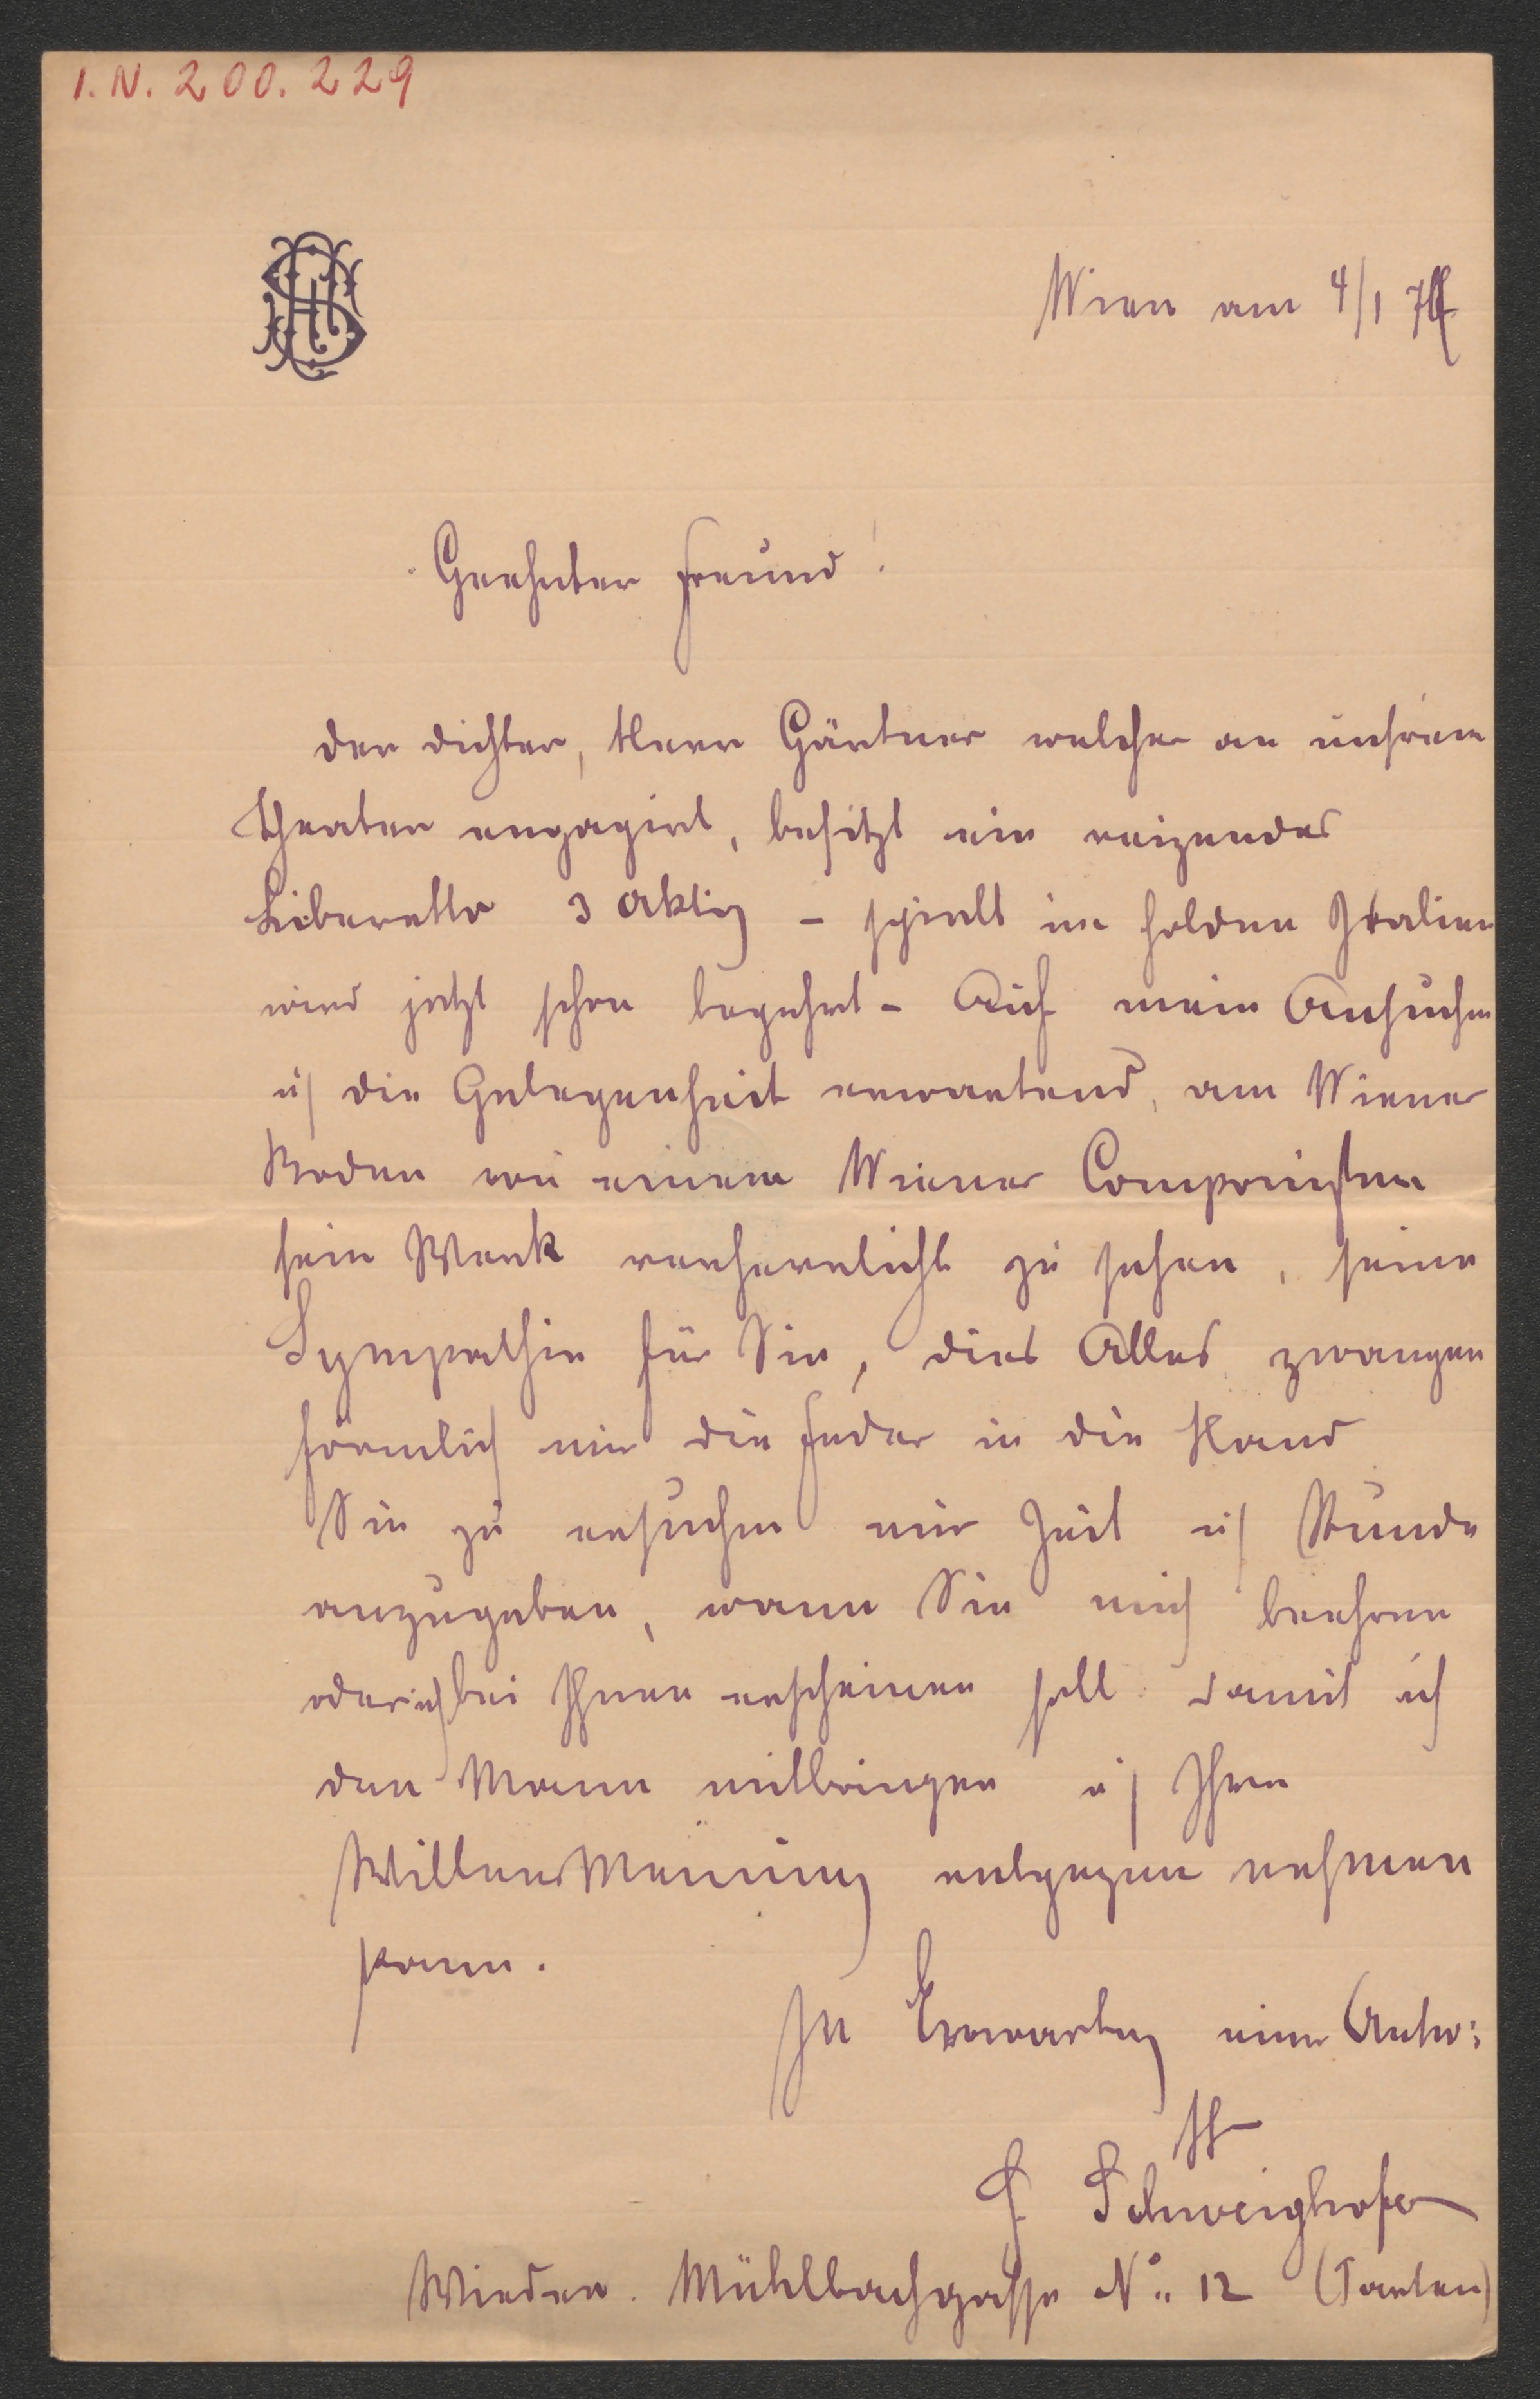 I.N. 200.229
Wien am 4/1 7
Geehrter Freund!
Der Dichter, Herr Gärtner welcher an unsrem
Theater engagirt, besitzt ein reizendes
Liberetto 3 Aktig – spielt im holden Italien
wird jetzt schon begehrt – Auf mein Ansuchen
u die Gelegenheit erwartend, am Wiener
Boden von einem Wiener Componisten
sein Werk verherrlicht zu sehen, seine
Sympathie für Sie, dies Alles zwangen
förmlich mir die Feder in die Hand
Sie zu ersuchen mir Zeit u Stunde
anzugeben, wann Sie mich beehren
oder ich bei Ihnen erscheinen soll damit ich
den Mann mitbringen u Ihre
Willens Meinung entgegen nehmen
kann.
In Erwartung einer Antw:
F Schweighofer
Wieden. Mühlbachgasse No. 12 (